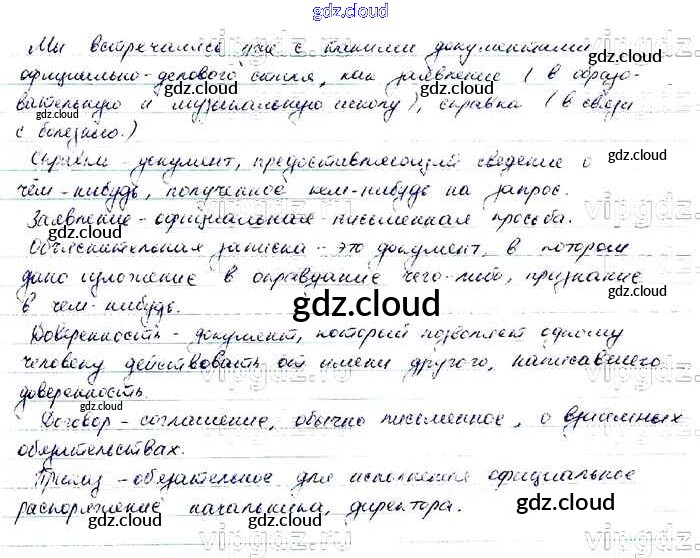 gdz.cloud
Мы встречались уже с такими документами
официально-делового стиля, как заявление (в образо-
вательную и музыкальную школу), справка (в связи
с болезнью.)
Справка - документ, предоставляющий сведение о
чём-нибудь, полученное кем-нибудь на запрос.
Заявление - официальная письменная просьба.
Объяснительная записка - это документ, в котором
дано изложение в оправдание чего-либо, признание
в чем-нибудь.
Доверенность - документ, который позволяет одному
человеку действовать от имени другого, написавшего
доверенность.
Договор - соглашение, обычно письменное, о взаимных
обязательствах.
Приказ - обязательное для исполнения официальное
распоряжение начальника, директора.
gdz.cloud
vipgdz.ru